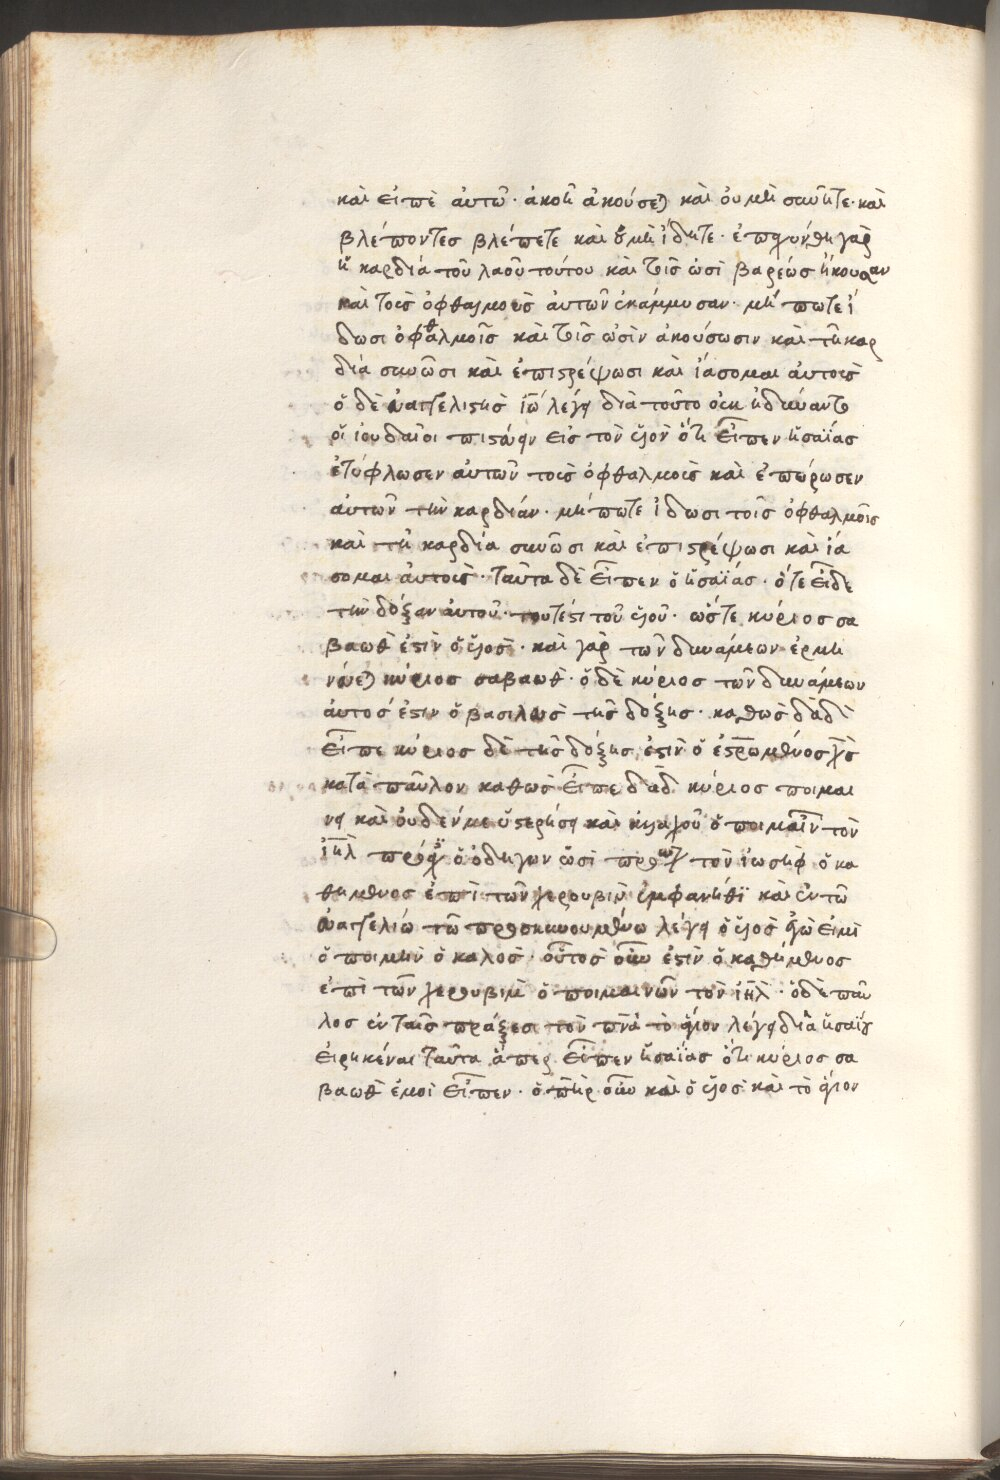 καὶ εἰπὲ αὐτῶ· ἀκοῆ ἀκούσετε καὶ οὐ μὴ συνῆτε· καὶ
βλέποντες βλέπετε καὶ οὐ μὴ ἴδητε· ἐπαχύνθη γὰρ
ἡ καρδία τοῦ λαοῦ τούτου καὶ τοῖς ὠσὶ βαρέως ἤκουσαν
καὶ τοὺς ὀφθαλμοὺς αὐτῶν ἐκάμμυσαν· μή πωτε ἴ
δωσι ὀφθαλμοῖς καὶ τοῖς ὠσὶν ἀκούσωσιν καὶ τῆ καρ
δία συνῶσι καὶ ἐπιστρέψωσι καὶ ἰάσομαι αὐτοὺς
ὁ δὲ εὐαγγελιστὴς ἰω λέγει διὰ τοῦτο οὐκ ἠδύναντο
οἱ ἰουδαῖοι πιστεύειν εἰς τὸν υἱὸν ὅτι εἶπεν ἡσαΐας
ἐτύφλωσεν αὐτῶν τοὺς ὀφθαλμοὺς καὶ ἐπώρωσεν
αὐτῶν τὴν καρδίαν· μή πωτε ἴδωσι τοῖς ὀφθαλμοῖς
καὶ τῆ καρδία συνῶσι καὶ ἐπιστρέψωσι καὶ ἰά
σομαι αὐτοὺς· ταῦτα δὲ εἶπεν ὁ ἡσαΐας· ὅτε εἶδε
τὴν δόξαν αὐτοῦ· τουτέστι τοῦ υἱοῦ· ὥστε κύριος σα
βαωθ ἐστὶν ὁ υἱὸς· καὶ γὰρ τῶν δυνάμεων ἑρμη
νεύεται κύριος σαβαωθ· ὁ δὲ κύριος τῶν δυνάμεων
αὐτός ἐστιν ὁ βασιλεὺς τῆς δόξης· καθὼς δαδ
εἶπε κύριος δὲ τῆς δόξης ἐστὶν ὁ ἐσταυρωμένος χς
κατὰ παῦλον καθὼς εἶπε δαδ κύριος ποιμαι
νει καὶ οὐδέν με ὑστερήσει καὶ ὁ ποιμαίνων τὸν
ιηλ πρόσχες ὁ ὁδηγῶν ὡσὶ πρόβατα τὸν ἰωσὴφ ὁ κα
θήμενος ἐπὶ τῶν χερουβὶμ ἐμφανήθι καὶ ἐν τῶ
εὐαγγελίω τῶ προσκυνουμένω λέγει ὁ υἱὸς ἐγὼ εἰμὶ
ὁ ποιμὴν ὁ καλὸς· οὗτος οὖν ἐστὶν ὁ καθήμενος
ἐπὶ τῶν χερουβὶμ ὁ ποιμαίνων τὸν ιηλ· ὁ δὲ παῦ
λος ἐν ταῖς πράξεσι τὸν πνα τὸ ἅγιον λέγει διὰ ἡσαΐου
εἰρηκέναι ταῦτα ἅπερ εἶπεν ἡσαΐας ὅτι κύριος σα
βαωθ ἐμοὶ εἶπεν· ὁ πηρ οὖν καὶ ὁ υἱὸς καὶ τὸ ἅγιον